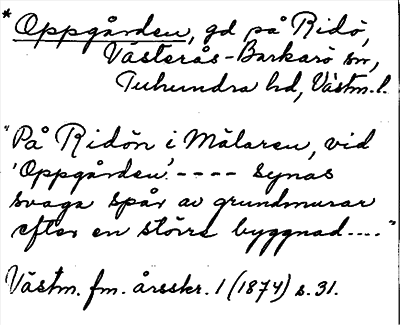 * Oppgården, gd på Ridö,
Västerås-Barkarö sn,
Tuhundra hd, Västm. l.
"På Ridön i Mälaren, vid
'Oppgården'. ---- synas
svaga spår av grundmurar
efter en större byggnad...."
Västm. fm. årsskr. 1 (1874) s. 31.